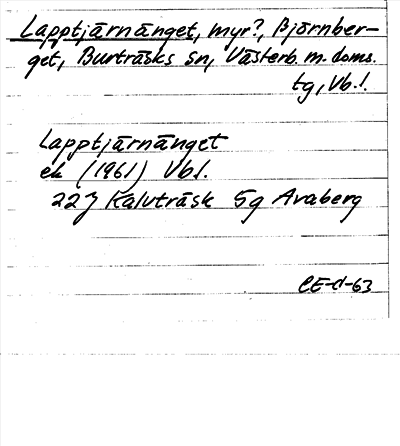 Lapptjärnänget, myr?, Björnber-
get, Burträsks sn, Västerb. m. doms.
tg, Vb.l.
Lapptjärnänget
ek (1961) Vb.l.
22J Kalvträsk 5g Avaberg